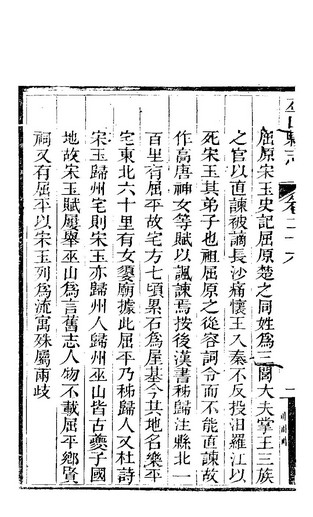 巫山縣志
卷二十六
一
屈原宋玉史記屈原楚之同姓爲三閭大夫掌王三族
之官以直諫被謫長沙痛懷王入秦不反投汨羅江以
死宋玉其弟子也祖屈原之從容詞令而不能直諫故
作高唐神女等賦以諷諫焉按後漢書秭歸注縣北一
百里有屈平故宅方七頃累石爲屋基今其地名樂平
宅東北六十里有女嬃廟據此屈平乃秭歸人又杜詩
宋玉歸州宅則宋玉亦歸州人歸州巫山皆古夔子國
地故宋玉賦屢舉巫山爲言舊志人物不載屈平鄉賢
祠又有屈平以宋玉列爲流寓殊屬兩歧